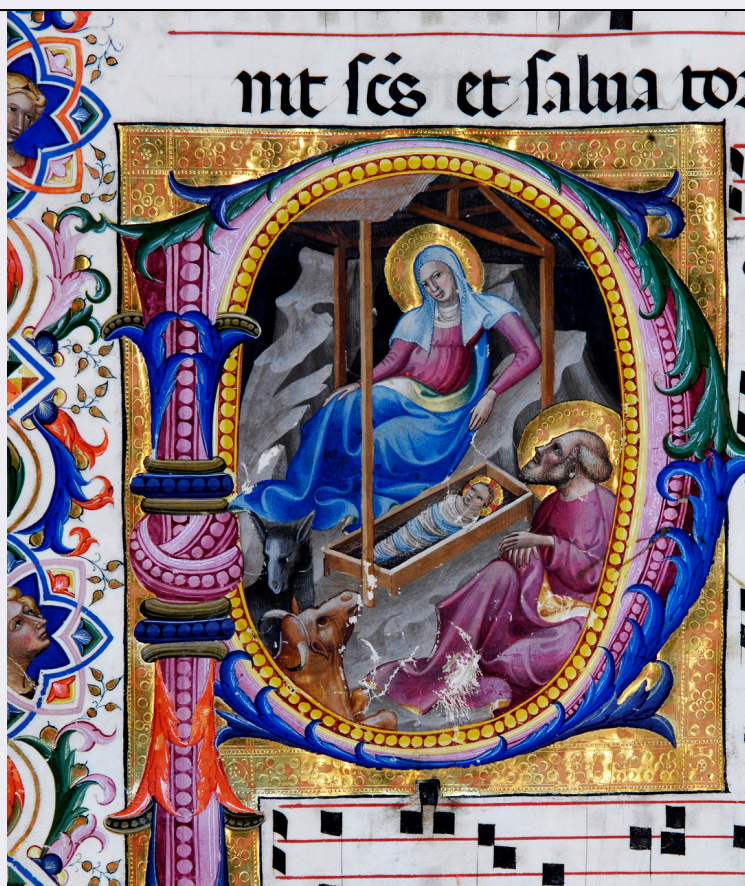 nit ſc̄s et ſalua tor
P